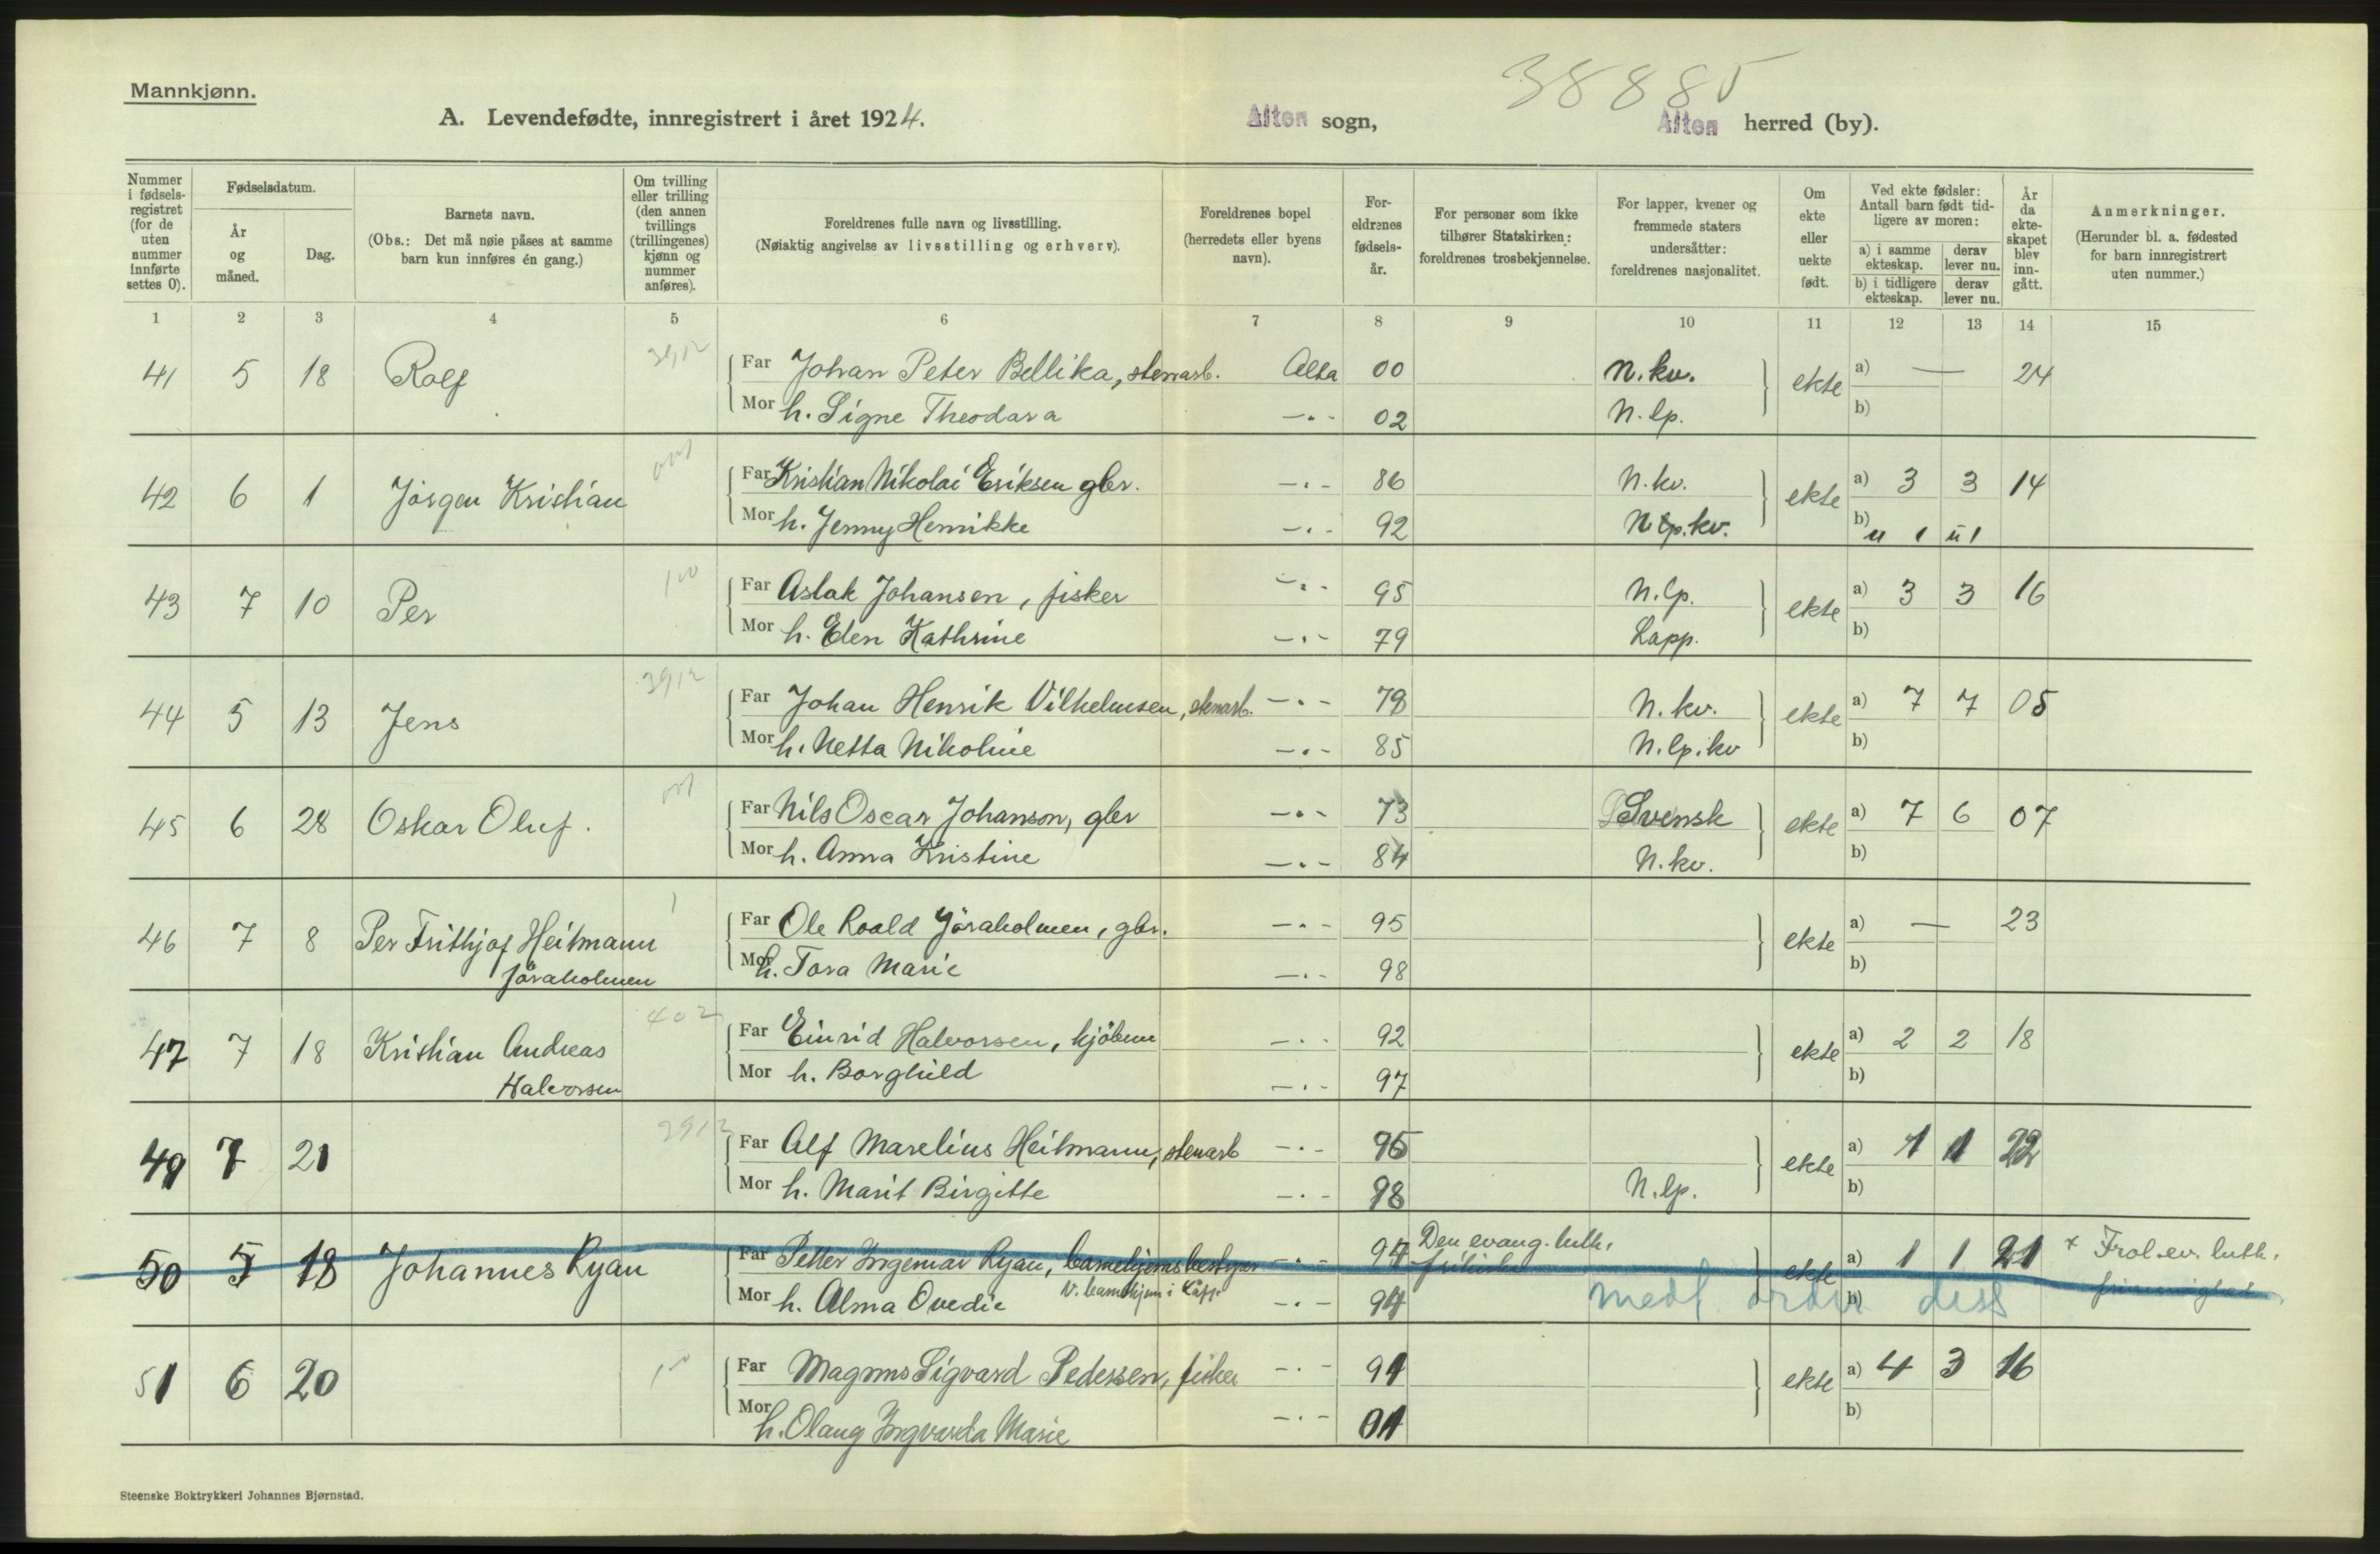 Mannkjønn.
38885
A. Levendefødte, innregistrert i året 1924. Alten sogn, Alten herred (by).
Nummer i fødsels-registret (for de uten nummer innførte settes 0).
Fødselsdatum.
År og måned.
Dag.
Barnets navn.
(Obs.: Det må nøie påses at samme barn kun innføres én gang.)
Om tvilling eller trilling (den annen tvillings (trillingenes) kjønn og nummer anføres).
Foreldrenes fulle navn og livsstilling.
(Nøiaktig angivelse av livsstilling og erhverv).
Foreldrenes bopel (herredets eller byens navn).
For-eldrenes fødsels-år.
For personer som ikke tilhører Statskirken: foreldrenes trosbekjennelse.
For lapper, kvener og fremmede staters undersåtter: foreldrenes nasjonalitet.
Om ekte eller uekte født.
Ved ekte fødsler: Antall barn født tid-ligere av moren:
a) i samme ekteskap. derav lever nu.
b) i tidligere ekteskap. derav lever nu.
År da ekte-skapet blev inn-gått.
Anmerkninger.
(Herunder bl. a. fødested for barn innregistrert uten nummer.)
1 2 3 4 5 6 7 8 9 10 11 12 13 14 15
41 5 18 Rolf 3912 Far Johan Peter Bellika, stenarb. Alta 00 N. kv. ekte a) — 24
Mor h. Signe Theodara —"— 02 N. lp. b)
42 6 1 Jörgen Kristian Far Kristian Nikolai Eriksen gbr. —"— 86 N. kv. ekte a) 3 3 14
Mor h. Jenny Henrikke —"— 92 N lp. kv. b) u 1 u 1
43 7 10 Per 100 Far Aslak Johansen, fisker —"— 95 N. lp. ekte a) 3 3 16
Mor h. Elen Kathrine —"— 79 Lapp. b)
44 5 13 Jens 3912 Far Johan Henrik Vilhelmsen, stenarb. —"— 78 N. kv. ekte a) 7 7 05
Mor h. Netta Nikoline —"— 85 N. lp. kv b)
45 6 28 Oskar Oluf. Far Nils Oscar Johanson, gbr —"— 73 Svensk ekte a) 7 6 07
Mor h. Anna Kristine —"— 84 N. kv. b)
46 7 8 Per Frithjof Heitmann 1 Far Ole Roald Jöraholmen, gbr. —"— 95 ekte a) — 23
Jöraholmen Mor h. Tora Marie —"— 98 b)
47 7 18 Kristian Andreas 402 Far Einrid Halvorsen, kjöbm —"— 92 ekte a) 2 2 18
Halvorsen Mor h. Borghild —"— 97 b)
49 7 21 3912 Far Alf Marelius Heitmann, stenarb —"— 95 ekte a) 1 1 22
Mor h. Marit Birgitte —"— 98 N. lp. b)
50 5 18 Johannes Ryan Far Petter Ingemar Ryan, barnehjemsbestyrer —"— 94 Den evang. luth. frikirke ekte a) 1 1 21 + Frol. ev. luth.
Mor h. Alma Ovedie V. barnehjem i Lapp. —"— 94 b)
51 6 20 Far Magnus Sigvard Pedersen, fisker —"— 91 ekte a) 4 3 16
Mor h. Olaug Ingvarda Marie —"— 91 b)
Steenske Boktrykkeri Johannes Bjørnstad.